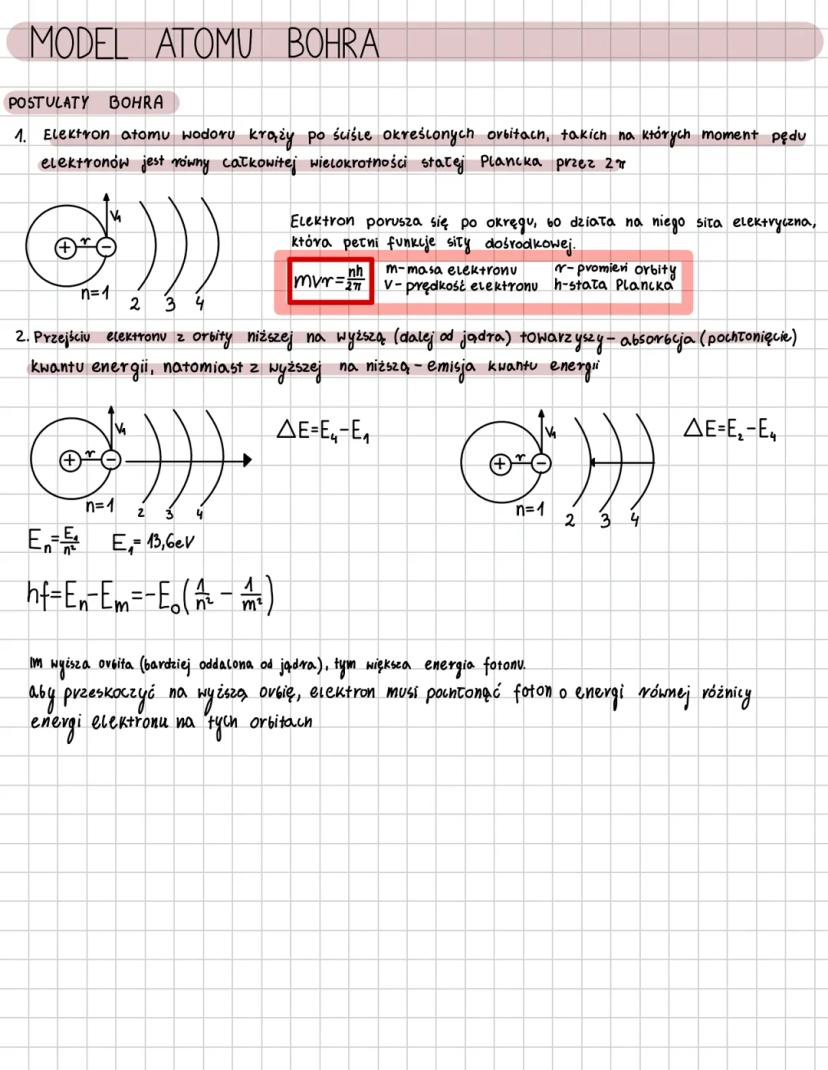 MODEL ATOMU BOHRA
POSTULATY BOHRA
1. Elektron atomu wodoru krąży po ściśle określonych orbitach, takich na których moment pędu
elektronów jest równy całkowitej wielokrotności stałej Plancka przez 2π
V₁
+ r −
n=1 2 3 4
Elektron porusza się po okręgu, bo działa na niego siła elektryczna,
która pełni funkcje siły dośrodkowej.
mvr=nh/2π
m-masa elektronu r-promień orbity
V-prędkość elektronu h-stała Plancka
2. Przejściu elektronu z orbity niższej na wyższą (dalej od jądra) towarzyszy-absorbcja (pochłonięcie)
kwantu energii, natomiast z wyższej na niższą-emisja kwantu energii
V₁
+ r −
n=1 2 3 4
ΔE=E₄-E₁
V₁
+ r −
n=1 2 3 4
ΔE=E₂-E₄
Eₙ=E₁/n² E₁=13,6eV
hf=Eₙ-Eₘ=-E₀(1/n² - 1/m²)
Im wyższa orbita (bardziej oddalona od jądra), tym większa energia fotonu.
aby przeskoczyć na wyższą orbię, elektron musi pochłonąć foton o energi równej różnicy
energi elektronu na tych orbitach